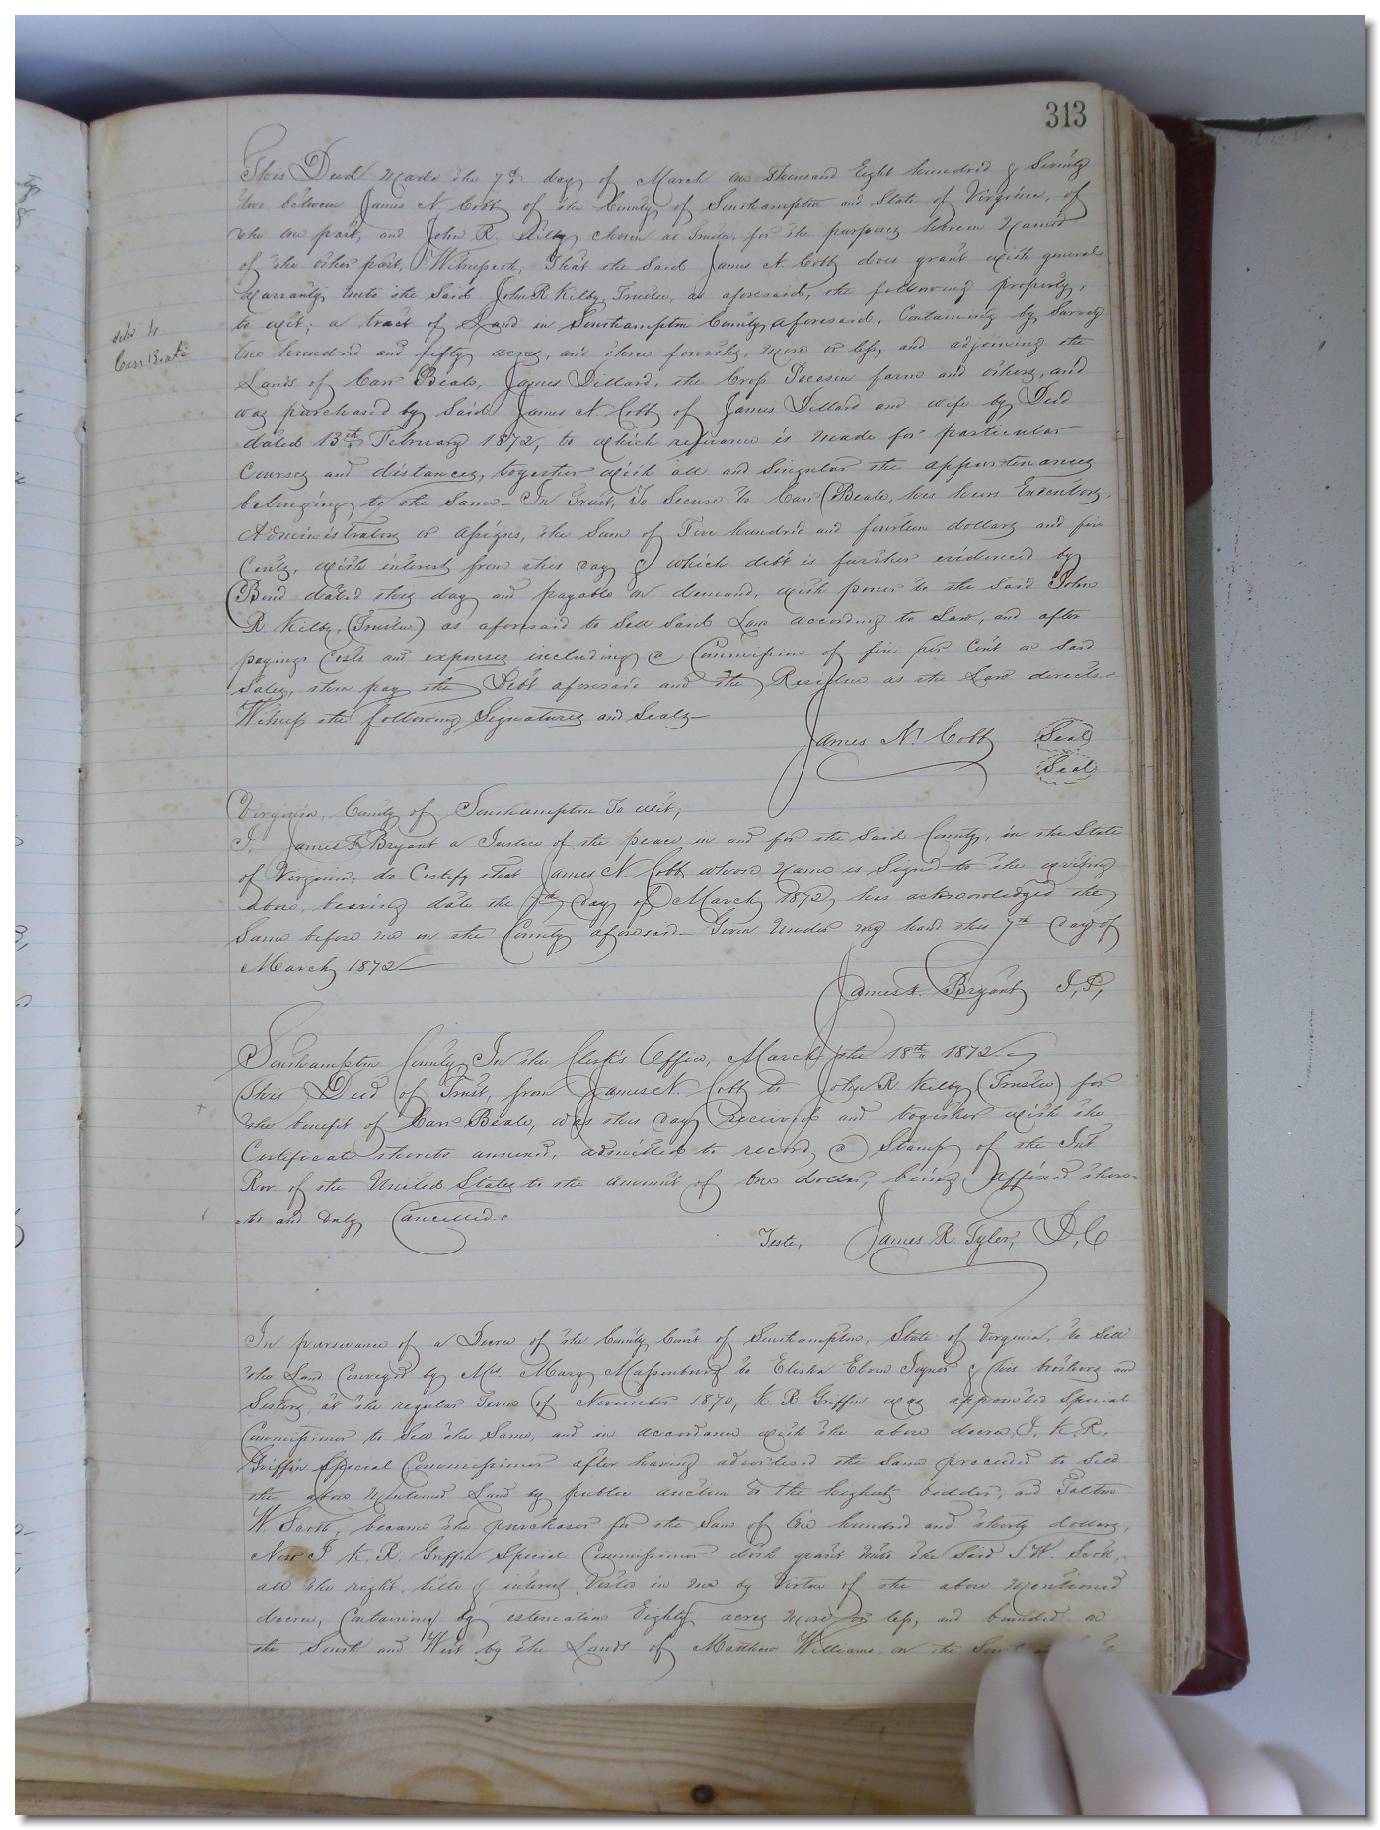 313
This Deed Made the 7th day of March one thousand Eight hundred & Seventy
two between James N Cobb of the County of Southampton and State of Virginia, of
the one part, and John R. Kilby chosen as Trustee for the purposes herein Named
of the other part, Witnesseth, That the Said James N. Cobb does grant with general
Warranty Unto the Said John R Kilby, Trustee, as aforesaid, the following property,
to wit; a tract of Land in Southampton County aforesaid, Containing by Survey
two hundred and fifty acres, and three fourths, more or less, and adjoining the
Lands of Carr Beale, James Dillard, the Cross farm and others, and
was purchased by Said James N Cobb of James Dillard and wife by Deed
dated 13th February 1872, to which reference is made for particular
Courses and distances, together with all and Singular the appurtenances
belonging to the Same - In Trust, To Secure to Carr Beale, his heirs Executors,
Administrators or assigns, the Sum of Five hundred and fourteen dollars and five
Cents, with interest from this day & which debt is further evidenced by
Bond dated this day and payable on demand, with power to the Said John
R. Kilby, (Trustee) as aforesaid to Sell Said Land according to Law, and after
paying Costs and expenses including a Commission of five per Cent on Said
Sales, then pay the Debt aforesaid and the Residue as the Law directs.
Witness the following Signatures and Seals -
James N. Cobb Seal
Seal
deld to
Carr Beale
Virginia, County of Southampton To wit,
I, James F. Bryant a Justice of the peace in and for the Said County, in the State
of Virginia, do Certify that James N. Cobb whose Name is Signed to the writing
above, bearing date the 7th day of March 1872, has acknowledged the
Same before me in the County aforesaid - Given Under my hand this 7th day of
March 1872
James F. Bryant J, P,
Southampton County, In the Clerk's Office, March the 18th 1872.
This Deed of Trust, from James N. Cobb to John R Kilby (Trustee) for
the benefit of Carr Beale, was this day received and together with the
Certificate thereto annexed, admitted to record, a Stamp of the Int
Rev. of the United States to the amount of One dollar, being affixed there-
-to and duly Cancelled.
Teste, James R. Tyler, D, C
In pursuance of a Decree of the County Court of Southampton, State of Virginia, to Sell
the Land Conveyed by Mrs. Mary Massenburg to Joyner & brothers and
Sisters, at the regular Term of November 1870, K. R Griffin was appointed Special
Commissioner to Sell the Same, and in accordance with the above decree, I, K. R.
Griffin Special Commissioner after having advertised the Same proceeded to Sell
the above Mentioned Land by public auction to the highest bidder, and
W. Scott, became the purchaser for the Sum of One hundred and thirty dollars,
Now I K. R. Griffin Special Commissioner doth grant Unto the Said W. Scott,
all the right, title & interest Vested in me by Virtue of the above Mentioned
decree, Containing by estimation Eighty acres more or less, and bounded on
the South and West by the Lands of Matthew Williams, on the